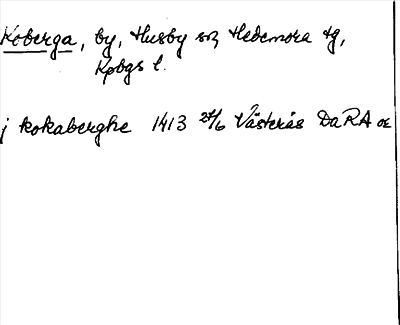 Koberga, by, Husby sn, Hedemora tg,
Kpbgs l.
j kokaberghe 1413 24/6 Västerås DaRA or